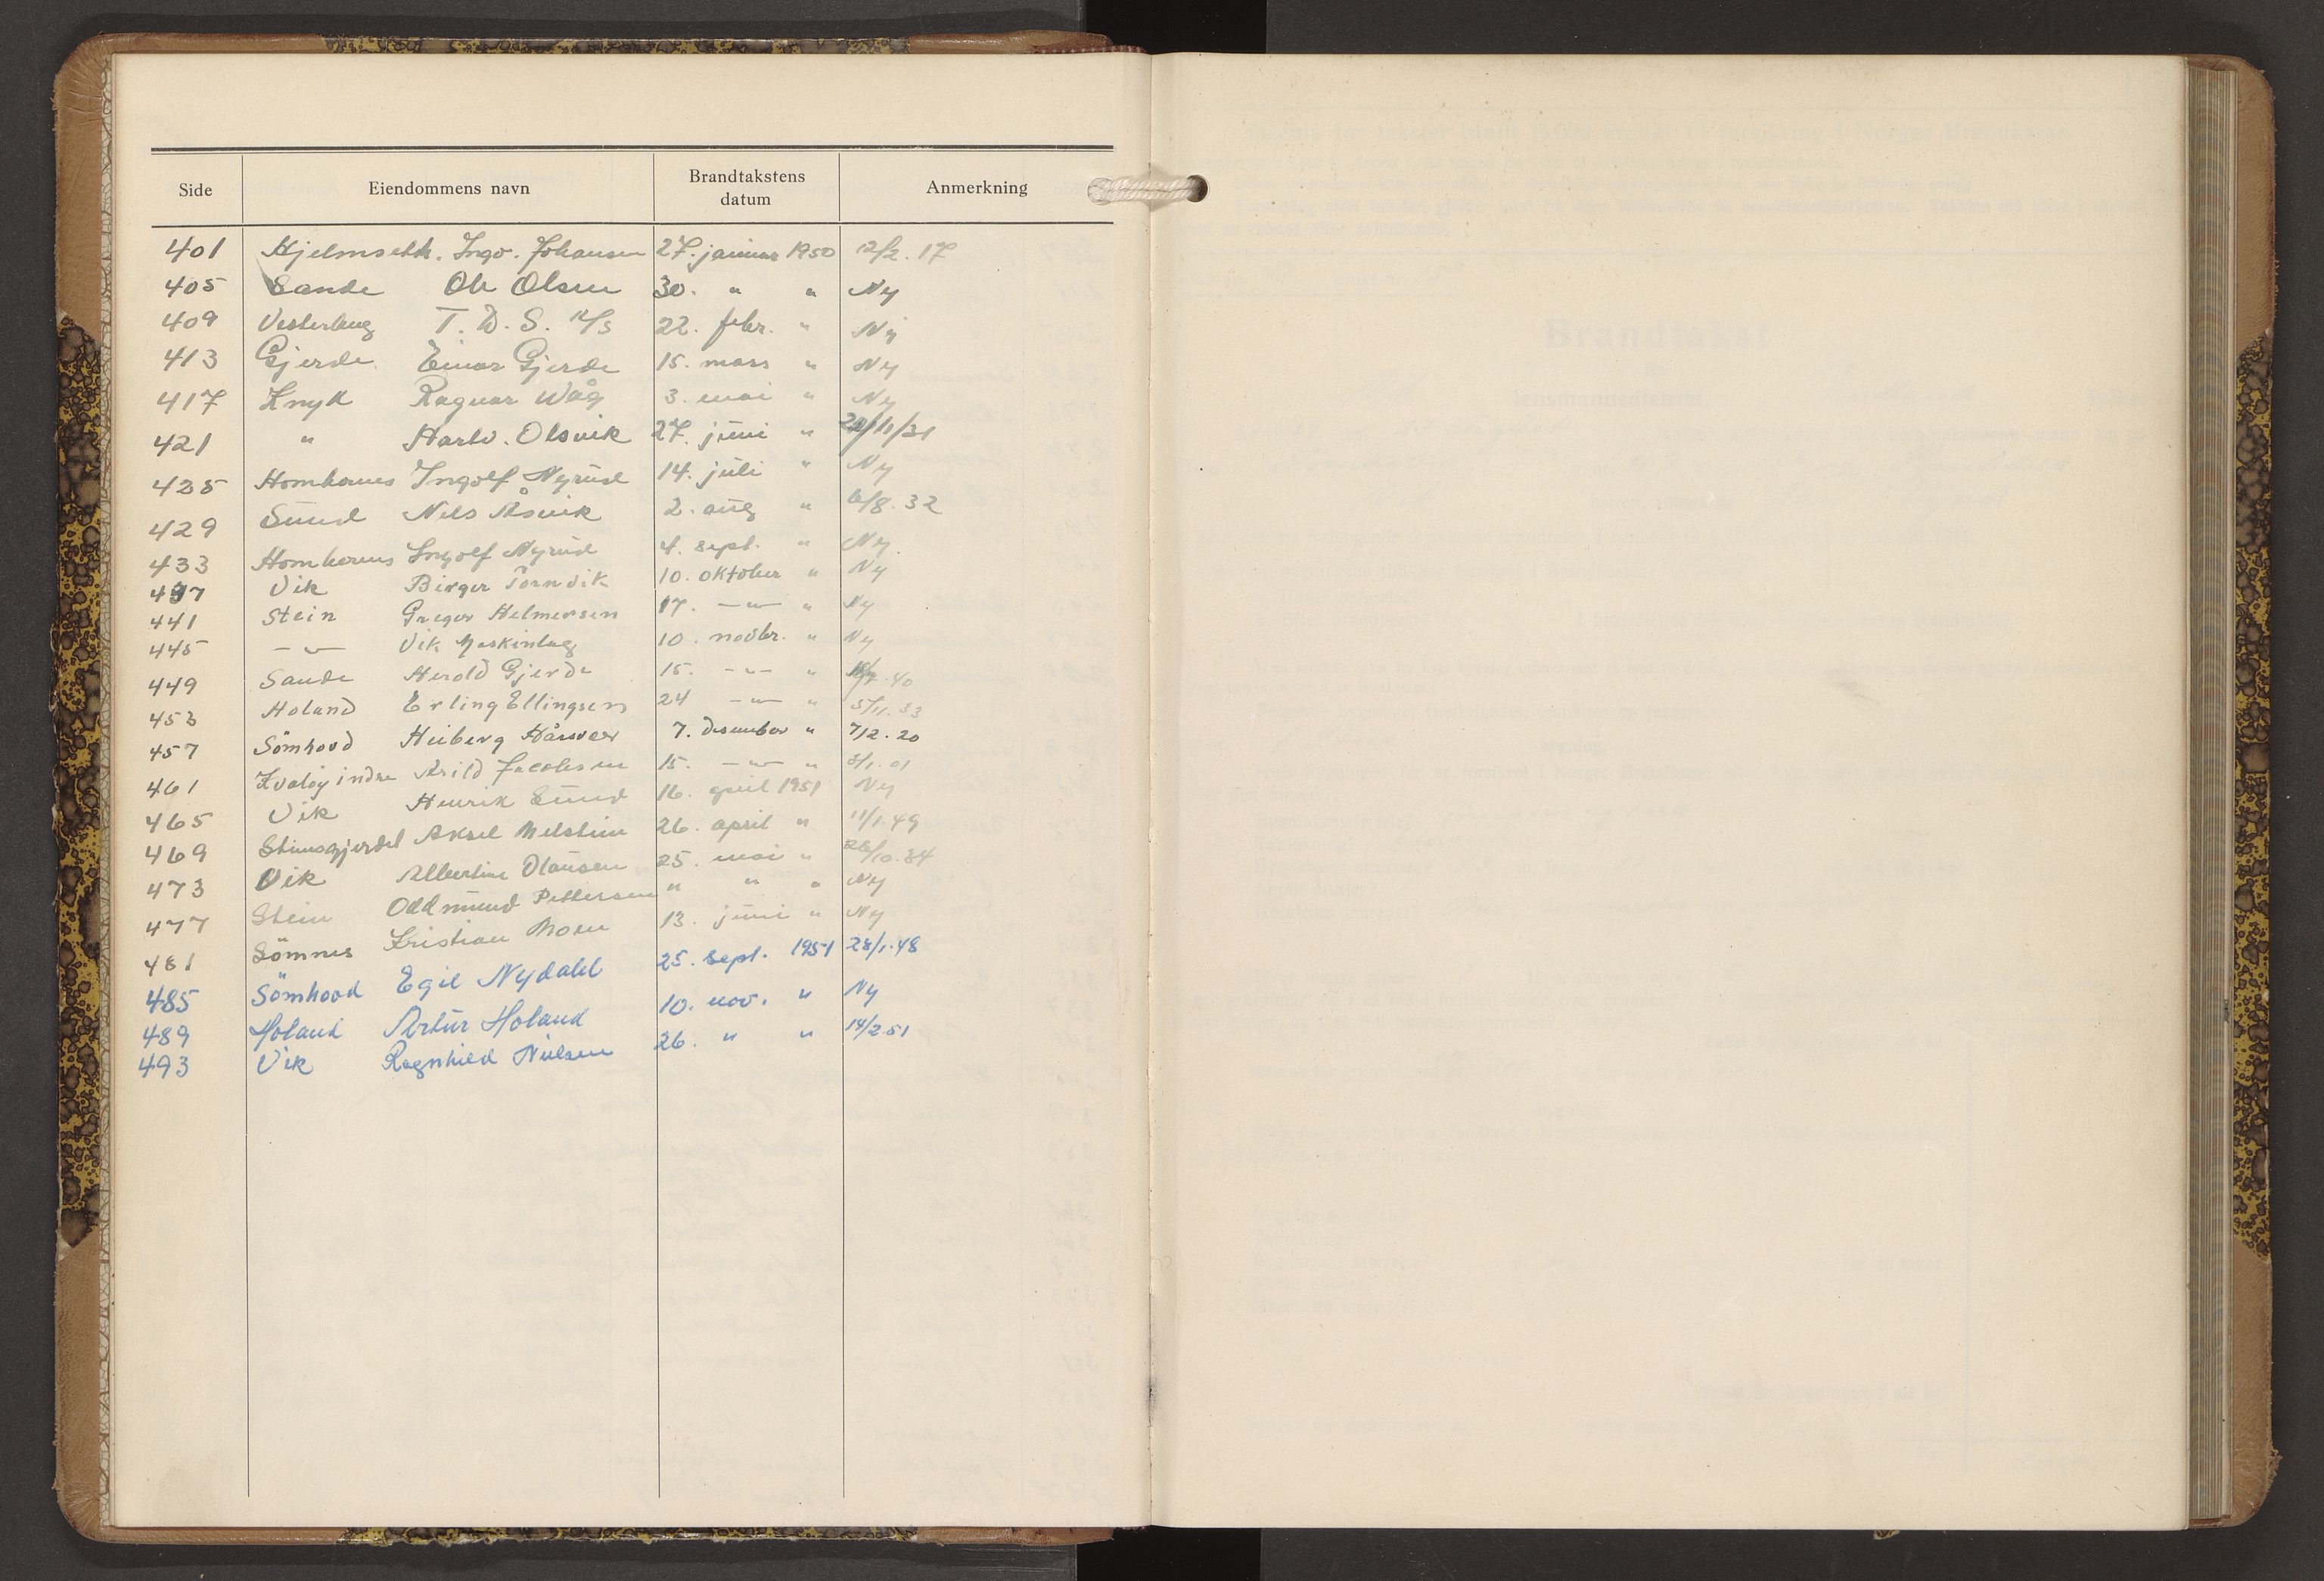 Side Eiendommens navn Brandtakstens datum Anmerkning
401 Hjelmseth. Ingv. Johansen 27. januar 1950 12/2. 17
405 Sande Ole Olsen 30. " " Ny
409 Vesterhaug T. D. S. 22. febr. " Ny
413 Gjerde Einar Gjerde 15. mars " Ny
417 Knyk Ragnar Wåg 3. mai " Ny
421 " Hartv. Olsvik 27. juni " 22/11/31
425 Homhornes Ingolf Nyrud 14. juli " Ny
429 Sund Nils Åsvik 2. aug " 6/8. 32
433 Homhornes Ingolf Nyrud 4. sept. " Ny.
437 Vik Birger Tornvik 10. oktober " Ny
441 Stein Greger Helmersen 17. -"- " Ny
445 -"- Vik Maskinlag 10. novbr. " Ny
449 Sande Herold Gjerde 15. -"- " 40
453 Holand Erling Ellingsen 24 -"- " 5/11. 33
457 Sömhovd Heiberg Hårvær 7. desember " 7/2. 20
461 Kvaløy indre Arild Jacobsen 15. -"- " 5/1. 01
465 Vik Henrik Sund 16. april 1951 Ny
469 Steinsgjerdet Aksel Melstein 26. april " 11/1. 49
473 Vik Albertine Olausen 25. mai " 26/10. 34
477 Stein Oddmund Pettersen " " " Ny
481 Sömnes Kristian Moen 13. juni " Ny
485 Sömhovd Egil Nydahl 25. sept. 1951 28/1. 48
489 Holand Artur Holand 10. nov. " Ny
493 Vik Ragnhild Nielsen 26. " " 14/2 51